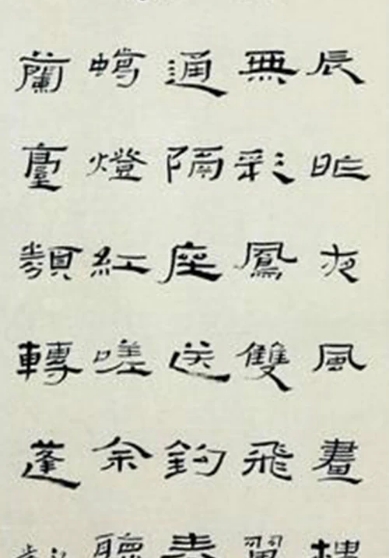 辰昨夜風畫樓
無彩鳳雙飛翼
通隔座送鈎春
蠟燈紅嗟余聽
蘭臺類轉蓬